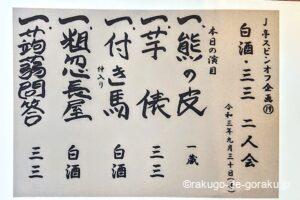 J亭スピンオフ企画⑲
白酒・三三 二人会
令和三年九月三十日(木)
本日の演目
一、熊の皮 一蔵
一、芋俵 三三
一、付き馬 白酒
仲入り
一、粗忽長屋 白酒
一、蒟蒻問答 三三
©rakugo-de-goraku.jp